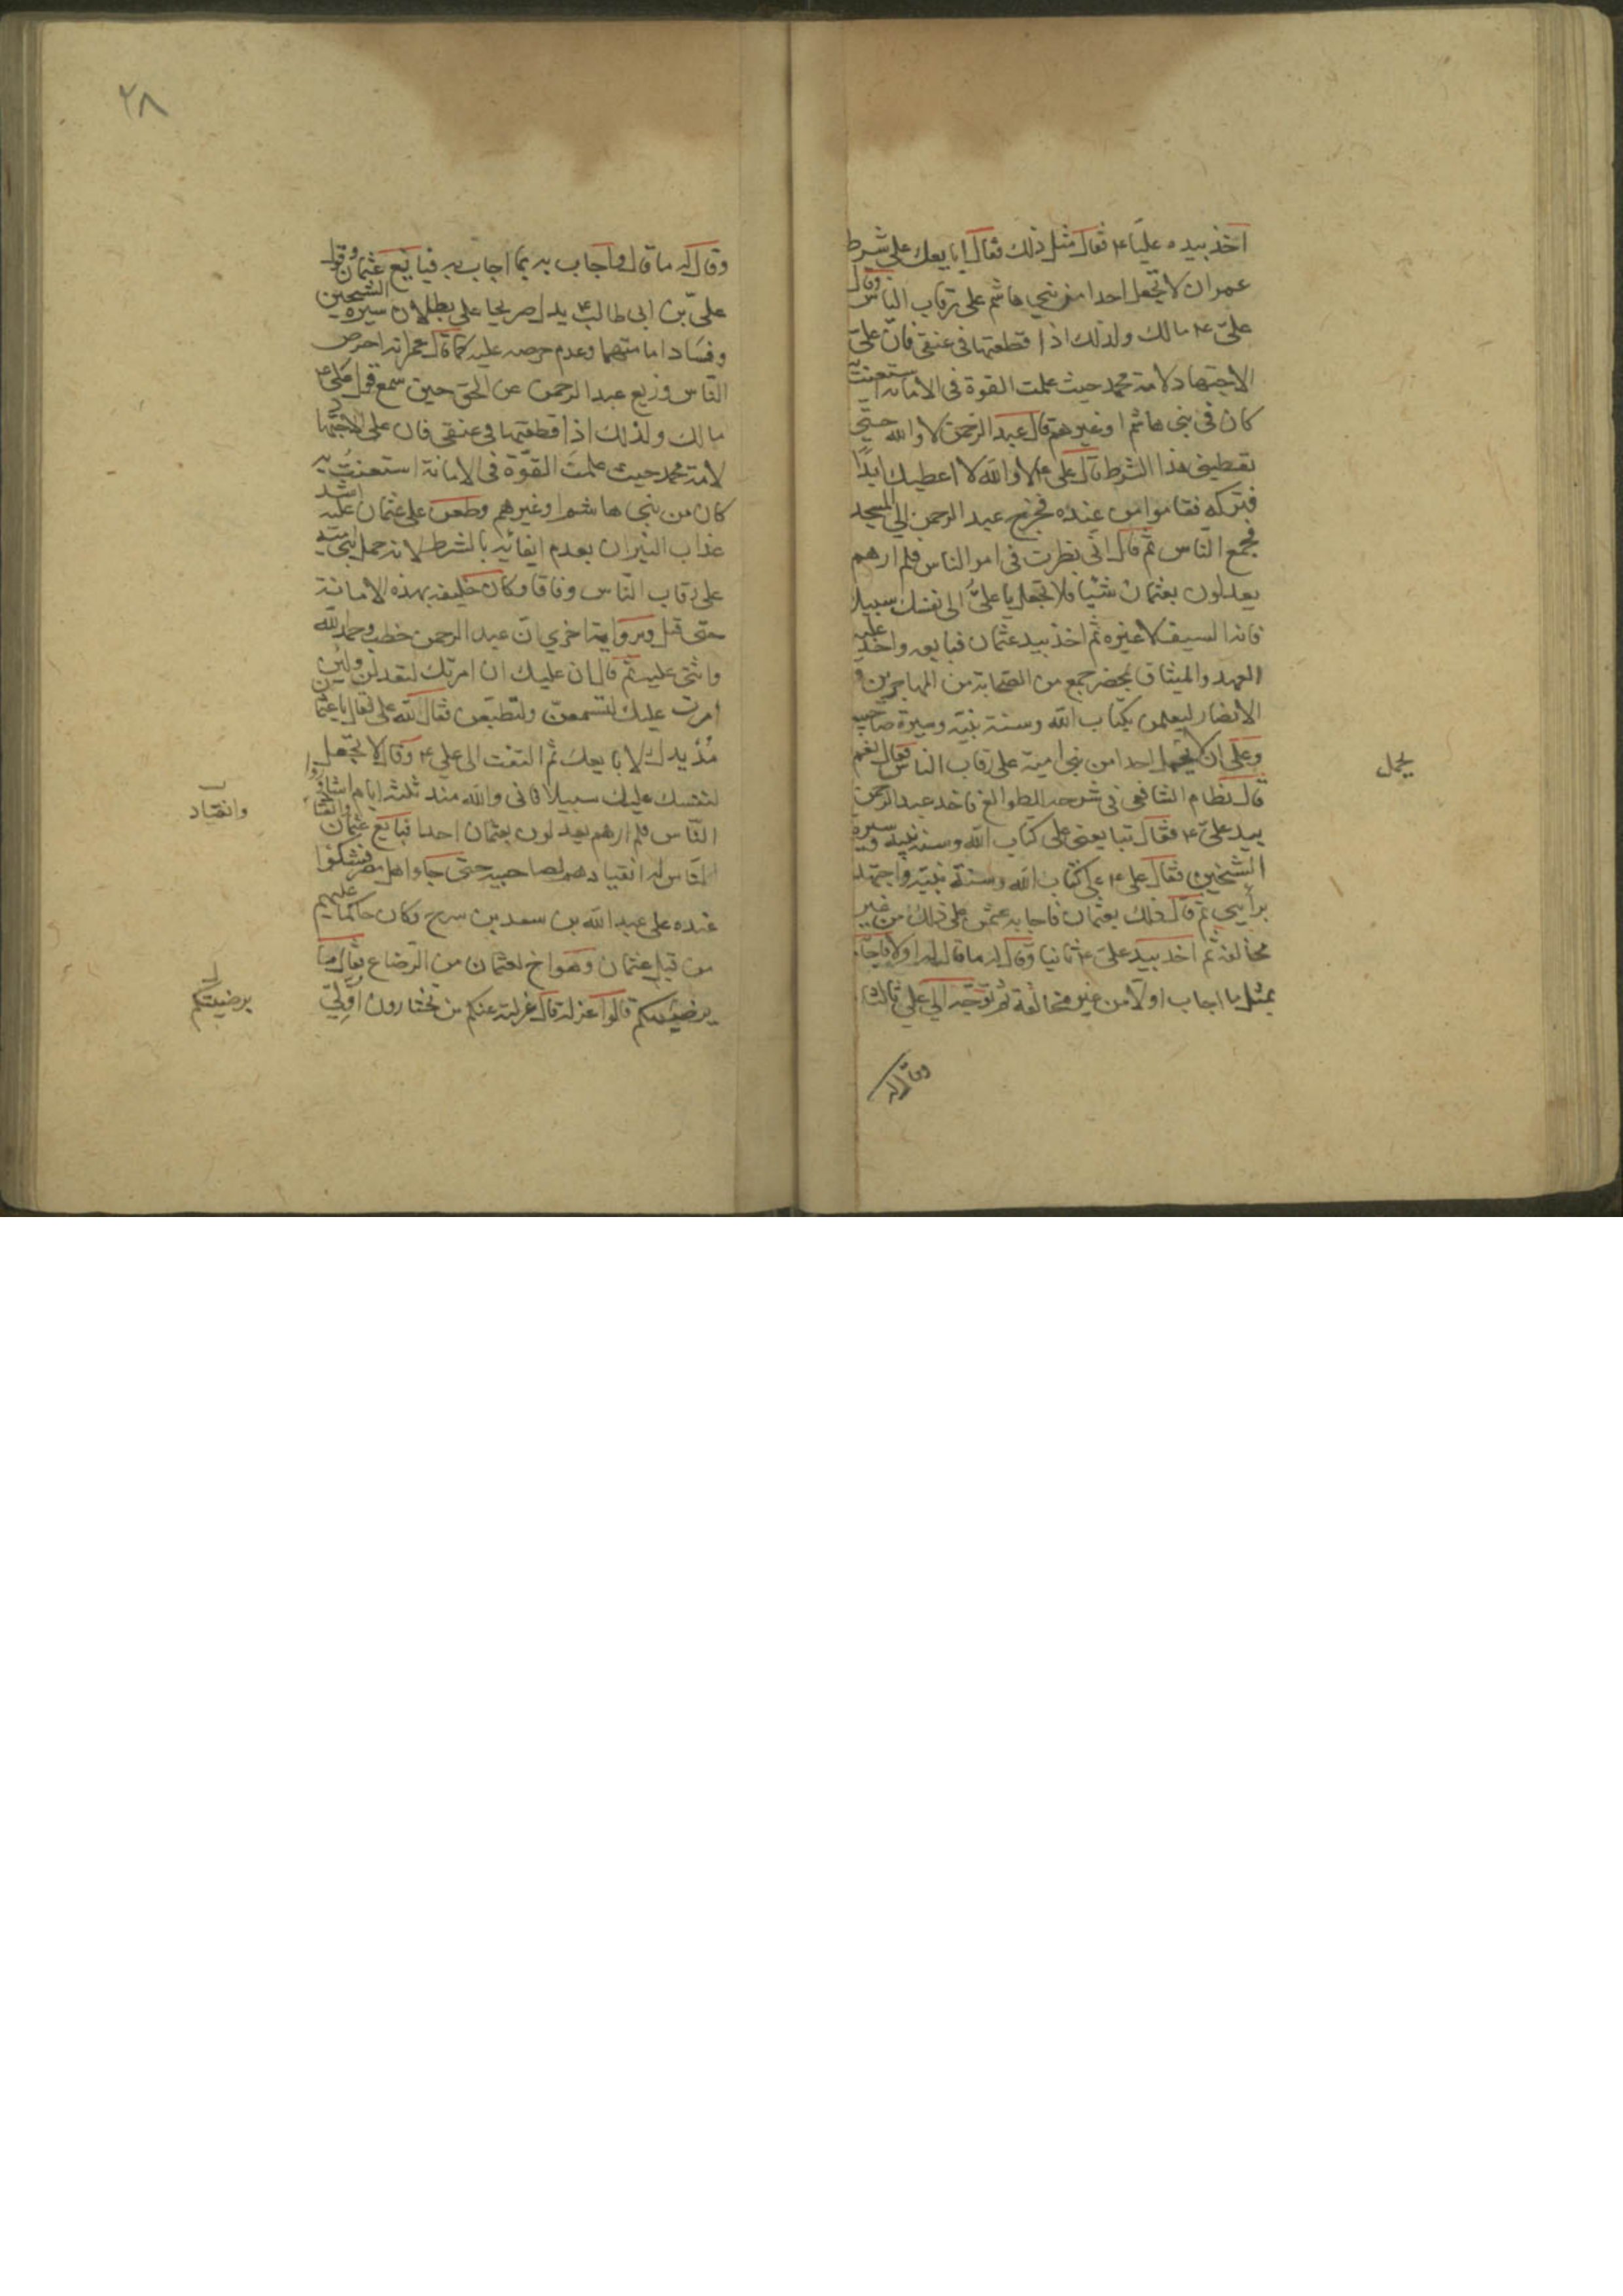 اخذ بيده عليا ع فقال مثل ذلك فقال ابايعك على شرط
عمر ان لا تجعل احدا من بني هاشم على رقاب الناس وقال
علي ع مالك ولذلك اذا قطعتها في عنقي فان علي
الاجتهاد لامة محمد حيث علمت القوة في الامانة استعنت به
كان في بني هاشم او غيرهم قال عبد الرحمن لا والله حتى
تعطيني هذا الشرط قال علي ع لا والله لا اعطيك ابدا
فتركه فقاموا من عنده فخرج عبد الرحمن الى المسجد
فجمع الناس ثم قال اني نظرت في امر الناس فلم ارهم
يعدلون بعثمان شيئا فلا تجعل يا علي الى نفسك سبيلا
فانه السيف لا غيره ثم اخذ بيد عثمان فبايعه واخذ عليه
العهد والميثاق بمحضر جمع من الصحابة من المهاجرين و
الانصار ليعلمن بكتاب الله وسنة نبيه وسيرة صاحبيه
وعلى ان لا يجعل احدا من بني امية على رقاب الناس فقال نعم
يحمل
قال نظام الشافعي في شرحه الطوالع فاخذ عبد الرحمن
بيد علي ع فقال تبايعني على كتاب الله وسنة نبيه وسيرة
الشيخين فقال علي ع على كتاب الله وسنة نبيه واجتهد
برأيي ثم قال ذلك بعثمان فاجابه عثمن على ذلك من غير
مخالفة ثم اخذ بيد علي ع ثانيا وقال له ما قال له اولا فاجابه
بمثل ما اجاب اولا من غير مخالفة ثم توجه الى علي ثالثا
وقال له
٢٨
وقال له ما قال واجاب به بما اجاب به فبايع عثمان وقول
علي بن ابي طالب ع يدل صريحا على بطلان سيرة الشيخين
وفساد امامتهما وعدم حرصه عليه كما قال عمر انه احرص
الناس وزيع عبد الرحمن عن الحق حين سمع قول علي ع
مالك ولذلك اذا قطعتها في عنقي فان على الاجتهاد
لامة محمد حيث علمت القوة في الامانة استعنت به
كان من بني هاشم او غيرهم وطعن على عثمان عليه اشد
عذاب النيران بعدم ايفائه بالشرط لانه حمل بني امية
على رقاب الناس وفاقا وكان خليفه بهذه الامانة
حتى قتل وبرواية اخرى ان عبد الرحمن خطب وحمد الله
واثنى عليه ثم قال ان عليك ان امرتك لتعدلن ولئن
امرت عليك لتسمعن ولتطيعن فقال لله علي فقال يا عثمان
مد يدك لابايعك ثم التفت الى علي ع وقال لا تجعل
لنفسك عليك سبيلا فاني والله منذ ثلثة ايام اشاوروا
الناس فلم ارهم يعدلون بعثمان احدا فبايع عثمان والقاء
وانقياد
الناس له انقيادهم لصاحبيه حتى جاء اهل مصر فشكوا
عنده على عبد الله بن سعد بن سرح وكان حاكما عليهم
من قبل عثمان وهو اخ لعثمان من الرضاع فقال ما
يرضيكم قالوا عزله قال عزلته عنكم من تختارون اولي
يرضيكم